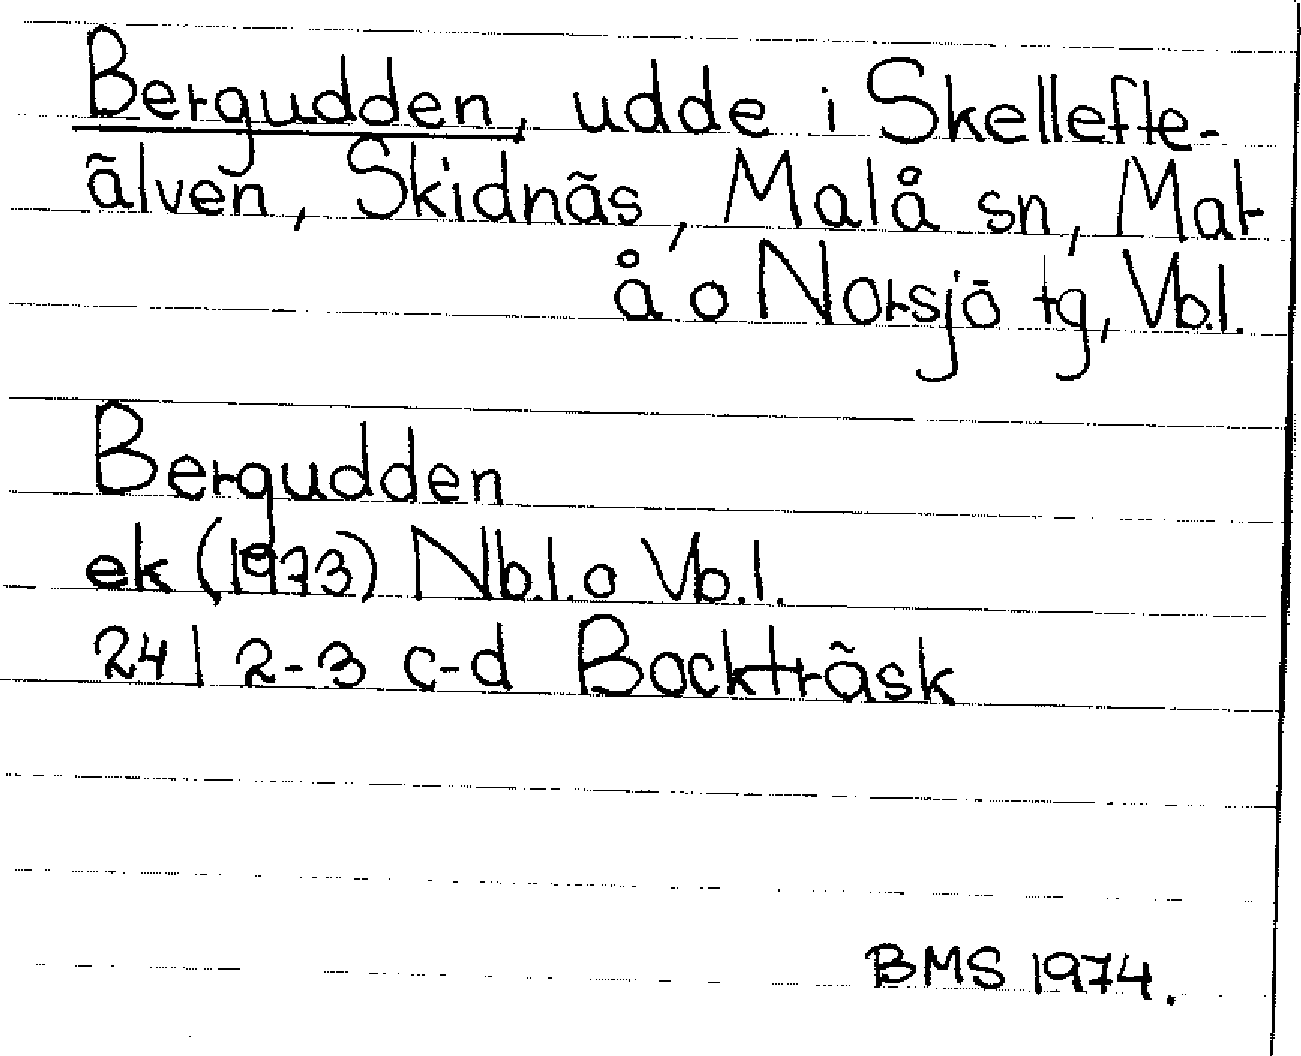 Bergudden, udde i Skellefte-
älven, Skidnäs, Malå sn, Mal-
å o Norsjö tg, Vb.l.
Bergudden
ek (1973) Nb.l. o Vb.l.
24 I 2-3 c-d Bockträsk
BMS 1974.